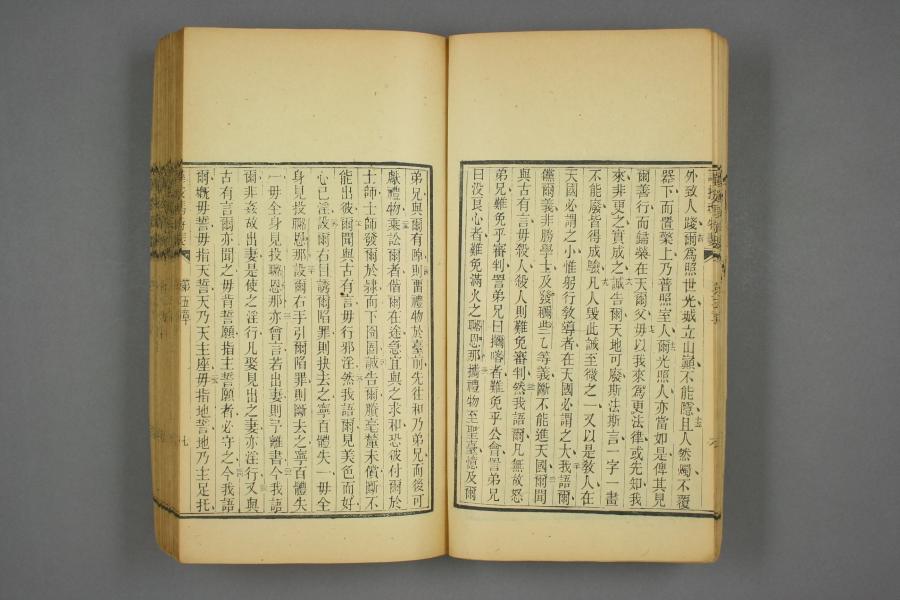 外致人踐爾爲照世光城立山巔不能隱且人然燭不覆
器下而置檠上乃普照室人爾光照人亦當如是俾其見
爾善行而歸榮在天爾父毋以我來爲更法律或先知我
來非更之貢成之誠告爾天地可廢斯法斯言一字一畫
不能廢皆得成驗凡人毀此誡至微之一又以是敎人在
天國必謂之小惟躬行敎導者在天國必謂之大我語爾
儻爾義非勝學士及發㘔些乙等義斷不能進天國爾聞
與古有言毋殺人殺人則難免審判然我語爾凡無故怒
弟兄難免乎審判詈弟兄曰㘔喀者難免乎公會詈弟兄
曰没良心者難免滅火之㘔恩那攜禮物至聖臺憶及爾
弟兄與爾有隙則畱禮物於臺前先往和乃弟兄而後可
獻禮物乘訟爾者偕爾在途急宜與之求和恐彼付爾於
士師士師發爾於隷而下囹圄誠告爾膌毫釐未償斷不
能出彼爾聞與古有言毋行邪淫然我語爾見美色而好
心已淫設爾右目誘爾陷罪則抉去之寧百體失一毋全
身見投㘔恩那設爾右手引爾陷罪則斷去之寧百體失
一毋全身見投㘔恩那亦會言若出妻則予離書今我語
爾非姦故出妻是使之淫行凡娶見出之妻亦淫行又與
古有言爾亦聞之毋背誓願指主誓願者必守之今我語
爾槪毋誓毋指天誓天乃天主座毋指地誓地乃主足托
第五章
七